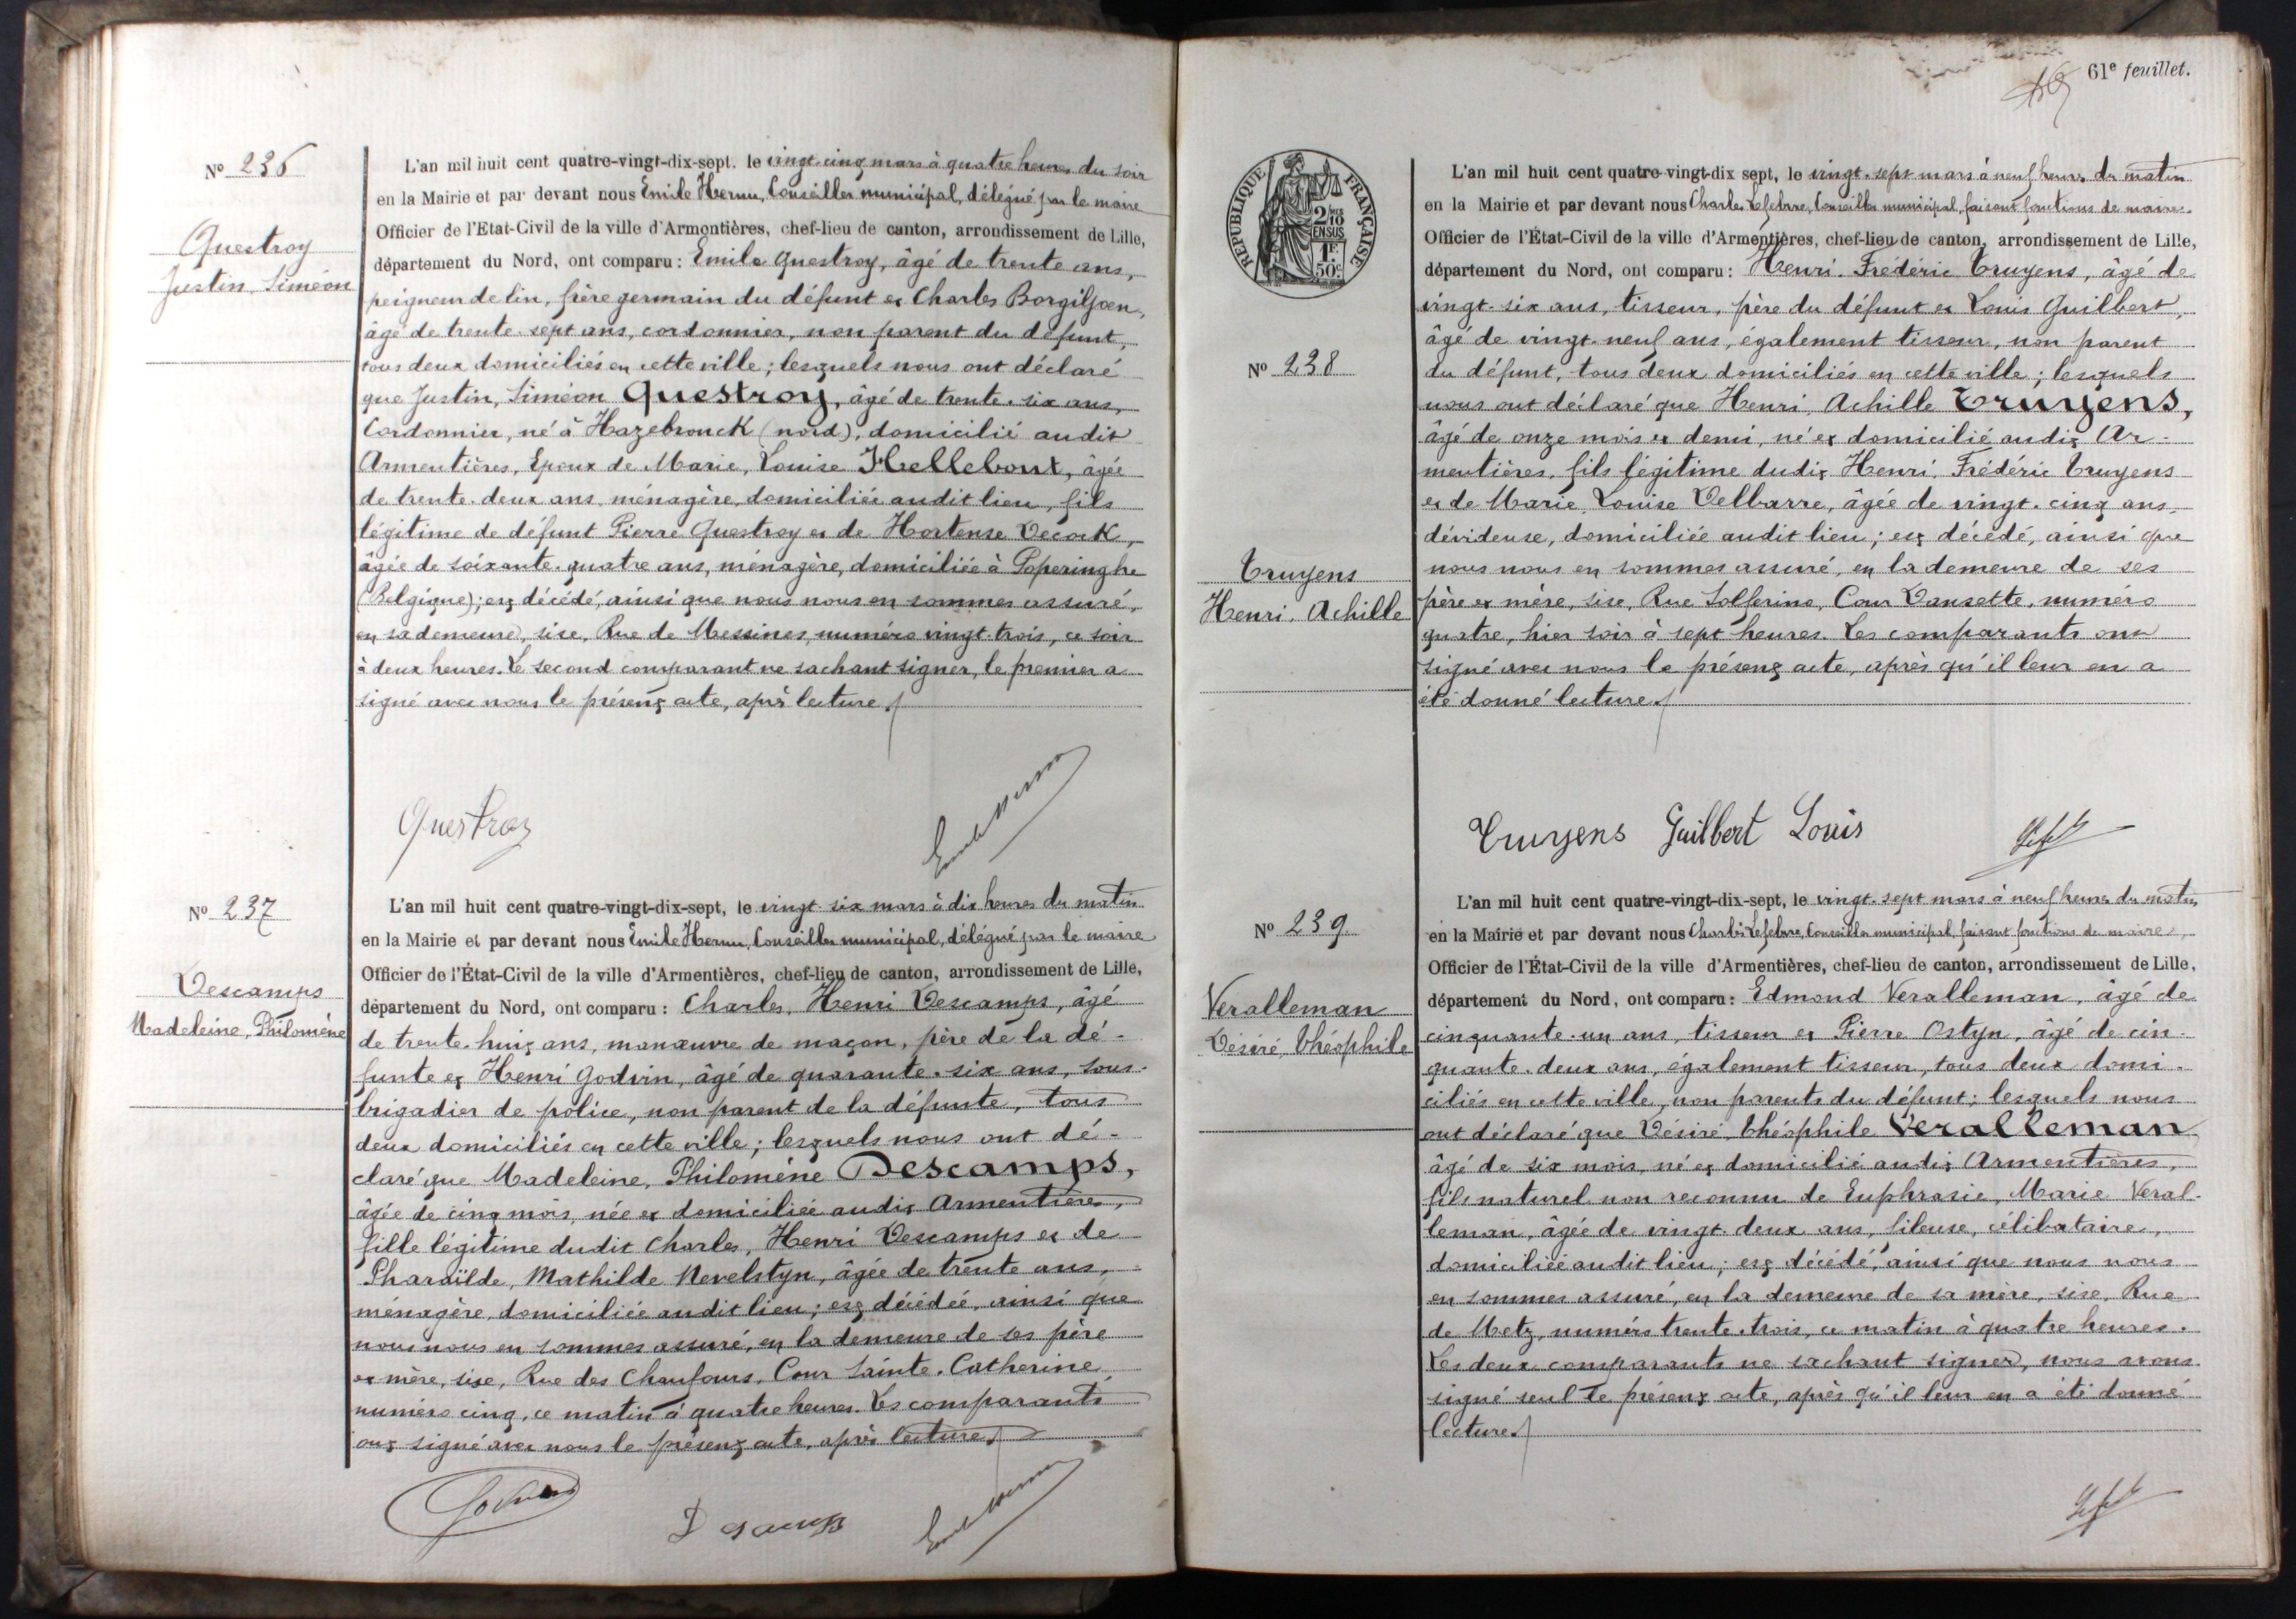 Nº 236
Questroy
Justin, Siméon
L'an mil huit cent quatre-vingt-dix-sept, le vingt-cinq mars à quatre heures du soir
en la Mairie et par devant nous Emile Hermu, Conseiller municipal, délégué par le maire
Officier de l'Etat-Civil de la ville d'Armentières, chef-lieu de canton, arrondissement de Lille,
département du Nord, ont comparu : Emile Questroy, âgé de trente ans,
peigneur de lin, frère germain du défunt et Charles Borgiljoen,
âgé de trente-sept ans, cordonnier, non parent du défunt,
tous deux domiciliés en cette ville ; lesquels nous ont déclaré
que Justin, Siméon Questroy, âgé de trente-six ans,
Cordonnier, né à Hazebrouck (nord), domicilié audit
Armentières, Epoux de Marie, Louise Hellebout, âgée
de trente-deux ans, ménagère, domiciliée audit lieu, fils
légitime de défunt Pierre Questroy et de Hortense Décock,
âgée de soixante-quatre ans, ménagère, domiciliée à Poperinghe
(Belgique) ; est décédé, ainsi que nous nous en sommes assuré,
en sa demeure, sise, Rue de Messines, numéro vingt-trois, ce soir
à deux heures. Le second comparant ne sachant signer, le premier a
signé avec nous le présent acte, après lecture.
Questroy
Nº 237
Descamps
Madeleine, Philomène
L'an mil huit cent quatre-vingt-dix-sept, le vingt-six mars à dix heures du matin
en la Mairie et par devant nous Emile Hermu, Conseiller municipal, délégué par le maire
Officier de l'État-Civil de la ville d'Armentières, chef-lieu de canton, arrondissement de Lille,
département du Nord, ont comparu : Charles, Henri Descamps, âgé
de trente-huit ans, manœuvre de maçon, père de la dé-
funte et Henri Godvin, âgé de quarante-six ans, sous-
brigadier de police, non parent de la défunte, tous
deux domiciliés en cette ville ; lesquels nous ont dé-
claré que Madeleine, Philomène Descamps,
âgée de cinq mois, née et domiciliée audit Armentières,
fille légitime dudit Charles, Henri Descamps et de
Pharaïlde, Mathilde Nevelstyn, âgée de trente ans,
ménagère, domiciliée audit lieu ; est décédée, ainsi que
nous nous en sommes assuré, en la demeure de ses père
et mère, sise, Rue des Chaufours, Cour Sainte-Catherine,
numéro cinq, ce matin à quatre heures. Les comparants
ont signé avec nous le présent acte, après lecture.
61e feuillet.
RÉPUBLIQUE FRANÇAISE
2/10 EN SUS
1F. 50c
Nº 238
Truyens
Henri, Achille
L'an mil huit cent quatre-vingt-dix sept, le vingt-sept mars à neuf heures du matin
en la Mairie et par devant nous Charles Lefebvre, Conseiller municipal, faisant fonctions de maire,
Officier de l'État-Civil de la ville d'Armentières, chef-lieu de canton, arrondissement de Lille,
département du Nord, ont comparu : Henri, Frédéric Truyens, âgé de
vingt-six ans, tisseur, père du défunt et Louis Guilbert,
âgé de vingt-neuf ans, également tisseur, non parent
du défunt, tous deux domiciliés en cette ville ; lesquels
nous ont déclaré que Henri, Achille Truyens,
âgé de onze mois et demi, né et domicilié audit Ar-
mentières, fils légitime dudit Henri, Frédéric Truyens
et de Marie, Louise Delbarre, âgée de vingt-cinq ans,
dévideuse, domiciliée audit lieu ; est décédé, ainsi que
nous nous en sommes assuré, en la demeure de ses
père et mère, sise, Rue Solferino, Cour Dansette, numéro
quatre, hier soir à sept heures. Les comparants ont
signé avec nous le présent acte, après qu'il leur en a
été donné lecture.
Truyens Guilbert Louis
Nº 239
Veralleman
Désiré, Théophile
L'an mil huit cent quatre-vingt-dix-sept, le vingt-sept mars à neuf heures du matin
en la Mairie et par devant nous Charles Lefebvre, Conseiller municipal, faisant fonctions de maire,
Officier de l'État-Civil de la ville d'Armentières, chef-lieu de canton, arrondissement de Lille,
département du Nord, ont comparu : Edmond Veralleman, âgé de
cinquante-un ans, tisseur et Pierre Ostyn, âgé de cin-
quante-deux ans, également tisseur, tous deux domi-
ciliés en cette ville, non parents du défunt ; lesquels nous
ont déclaré que Désiré, Théophile Veralleman
âgé de six mois, né et domicilié audit Armentières,
fils naturel non reconnu de Euphrasie, Marie Veral-
leman, âgée de vingt-deux ans, fileuse, célibataire,
domiciliée audit lieu ; est décédé, ainsi que nous nous
en sommes assuré, en la demeure de sa mère, sise, Rue
de Metz, numéro trente-trois, ce matin à quatre heures.
Les deux comparants ne sachant signer, nous avons
signé seul le présent acte, après qu'il leur en a été donné
lecture.